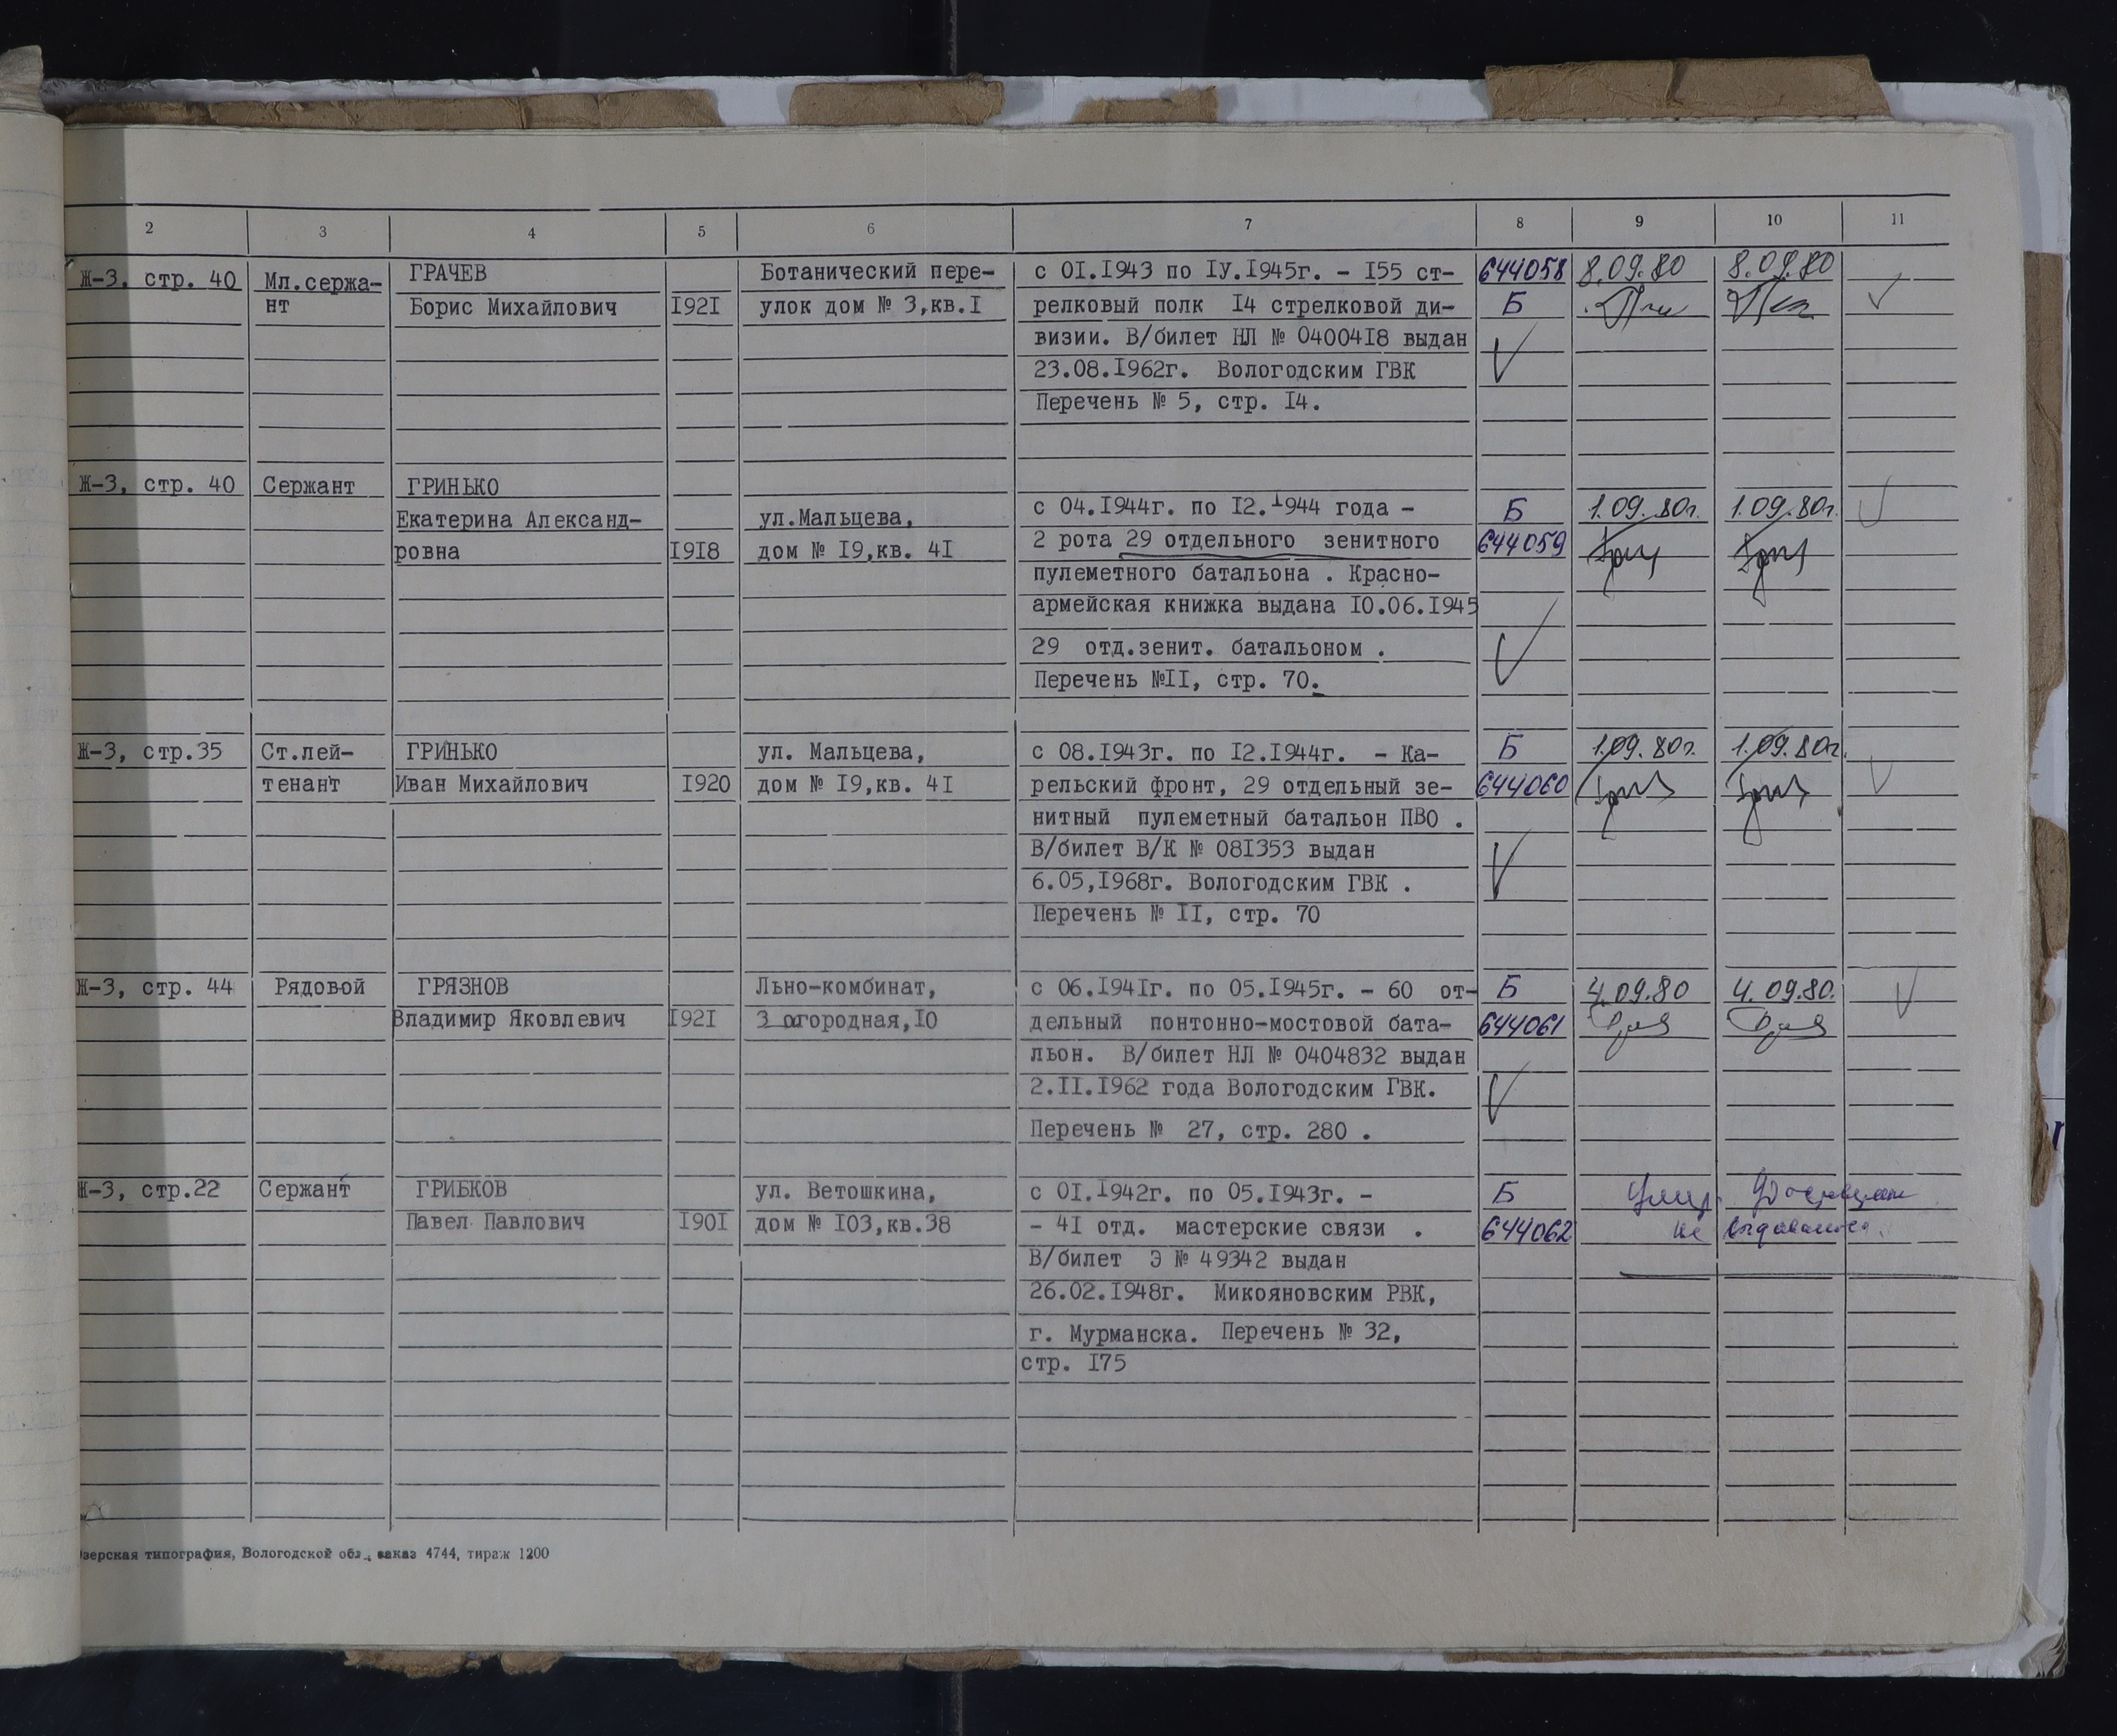 2 3 4 5 6 7 8 9 10 11
Ж-3, стр. 40 Мл.сержа- ГРАЧЕВ Ботанический пере- с 0I.I943 по IУ.I945г. - I55 ст- 644058 8.09.80 8.09.80
нт Борис Михайлович I92I улок дом № 3,кв.I релковый полк I4 стрелковой ди- Б
визии. В/билет НЛ № 04004I8 выдан
23.08.I962г. Вологодским ГВК
Перечень № 5, стр. I4.
Ж-3, стр. 40 Сержант ГРИНЬКО
Екатерина Александ- ул.Мальцева, с 04.I944г. по I2.I944 года - Б 1.09.80г. 1.09.80г.
ровна I9I8 дом № I9,кв. 4I 2 рота 29 отдельного зенитного 644059
пулеметного батальона . Красно-
армейская книжка выдана I0.06.I945
29 отд.зенит. батальоном .
Перечень №II, стр. 70.
Ж-3, стр.35 Ст.лей- ГРИНЬКО ул. Мальцева, с 08.I943г. по I2.I944г. - Ка- Б 1.09.80г. 1.09.80г.
тенант Иван Михайлович I920 дом № I9,кв. 4I рельский фронт, 29 отдельный зе- 644060
нитный пулеметный батальон ПВО .
В/билет В/К № 08I353 выдан
6.05,I968г. Вологодским ГВК .
Перечень № II, стр. 70
Ж-3, стр. 44 Рядовой ГРЯЗНОВ Льно-комбинат, с 06.I94Iг. по 05.I945г. - 60 от- Б 4.09.80 4.09.80.
Владимир Яковлевич I92I 3 огородная,I0 дельный понтонно-мостовой бата- 644061
льон. В/билет НЛ № 0404832 выдан
2.II.I962 года Вологодским ГВК.
Перечень № 27, стр. 280 .
Ж-3, стр.22 Сержант ГРИБКОВ ул. Ветошкина, с 0I.I942г. по 05.I943г. - Б
Павел Павлович I90I дом № I03,кв.38 - 4I отд. мастерские связи . 644062 не выдавалось.
В/билет Э № 49342 выдан
26.02.I948г. Микояновским РВК,
г. Мурманска. Перечень № 32,
стр. I75
зерская типография, Вологодской обл., заказ 4744, тираж 1200